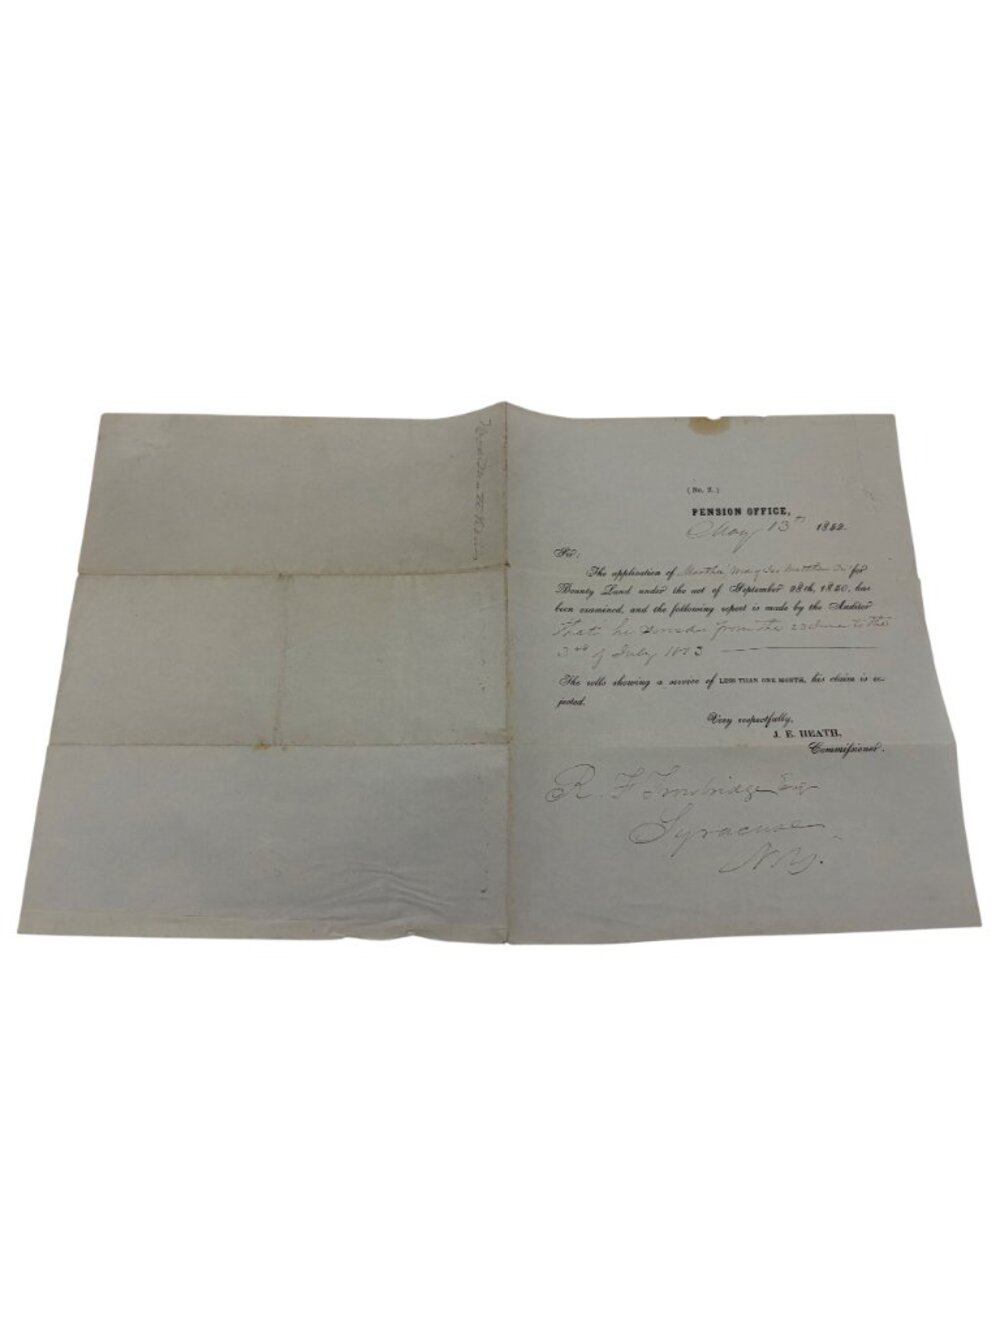 (No. 2.)
PENSION OFFICE,
May 13th 1852.
Sir:
The application of Martha for
Bounty Land under the act of September 28th, 1850, has
been examined, and the following report is made by the Auditor
that he served from the 23 June to the
3rd of July 1813
The rolls showing a service of LESS THAN ONE MONTH, his claim is re-
jected.
Very respectfully,
J. E. HEATH,
Commissioner.
R. F Trowbridge Esq
Syracuse
N.Y.